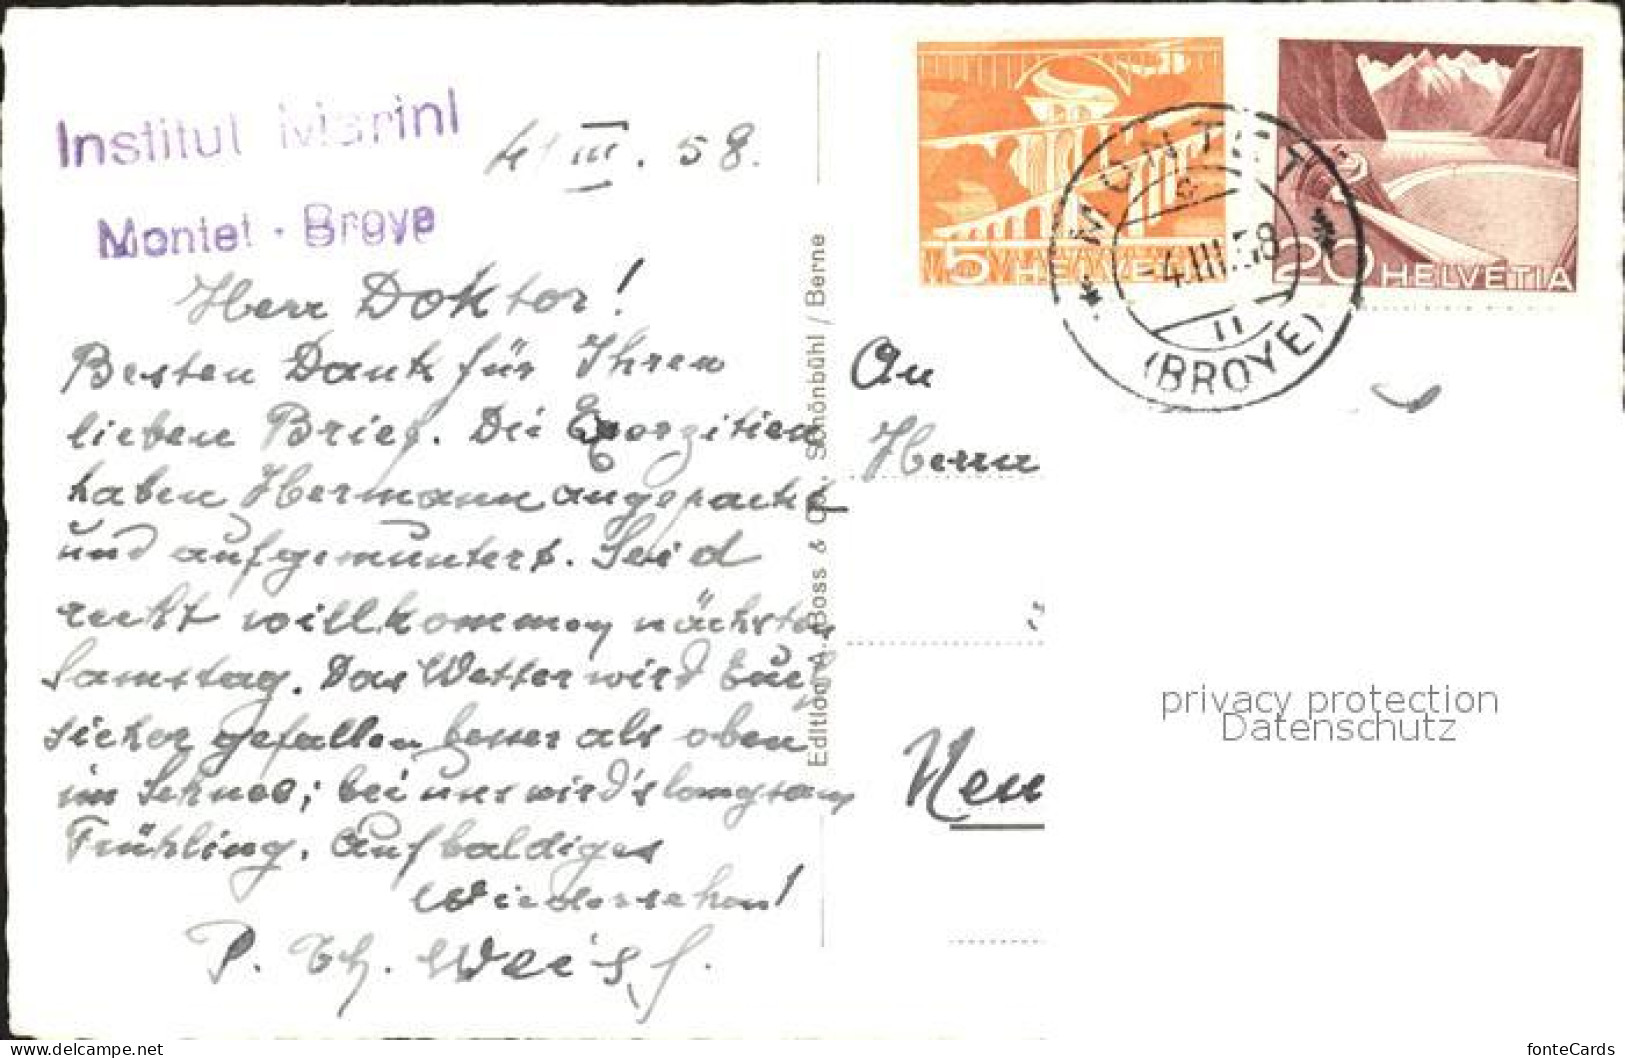 Institut Marini
Montet - Broye
4. III. 58.
Herr Doktor!
Besten Dank für Ihren
lieben Brief. Die Exerzitien
haben Hermann angepackt
und aufgemuntert. Seid
recht willkommen nächsten
Samstag. Das Wetter wird Euch
sicher gefallen besser als oben
im Schnee; bei uns wird's langsam
Frühling. Auf baldiges
Wiedersehen!
P. Th. Weis
Edition A. Boss & Co. Schönbühl / Berne
5 HELVETIA
20 HELVETIA
MONTET
4.III.58
11
(BROYE)
An
Herrn
Neu
privacy protection
Datenschutz
www.delcampe.net
the_seller
fonteCards